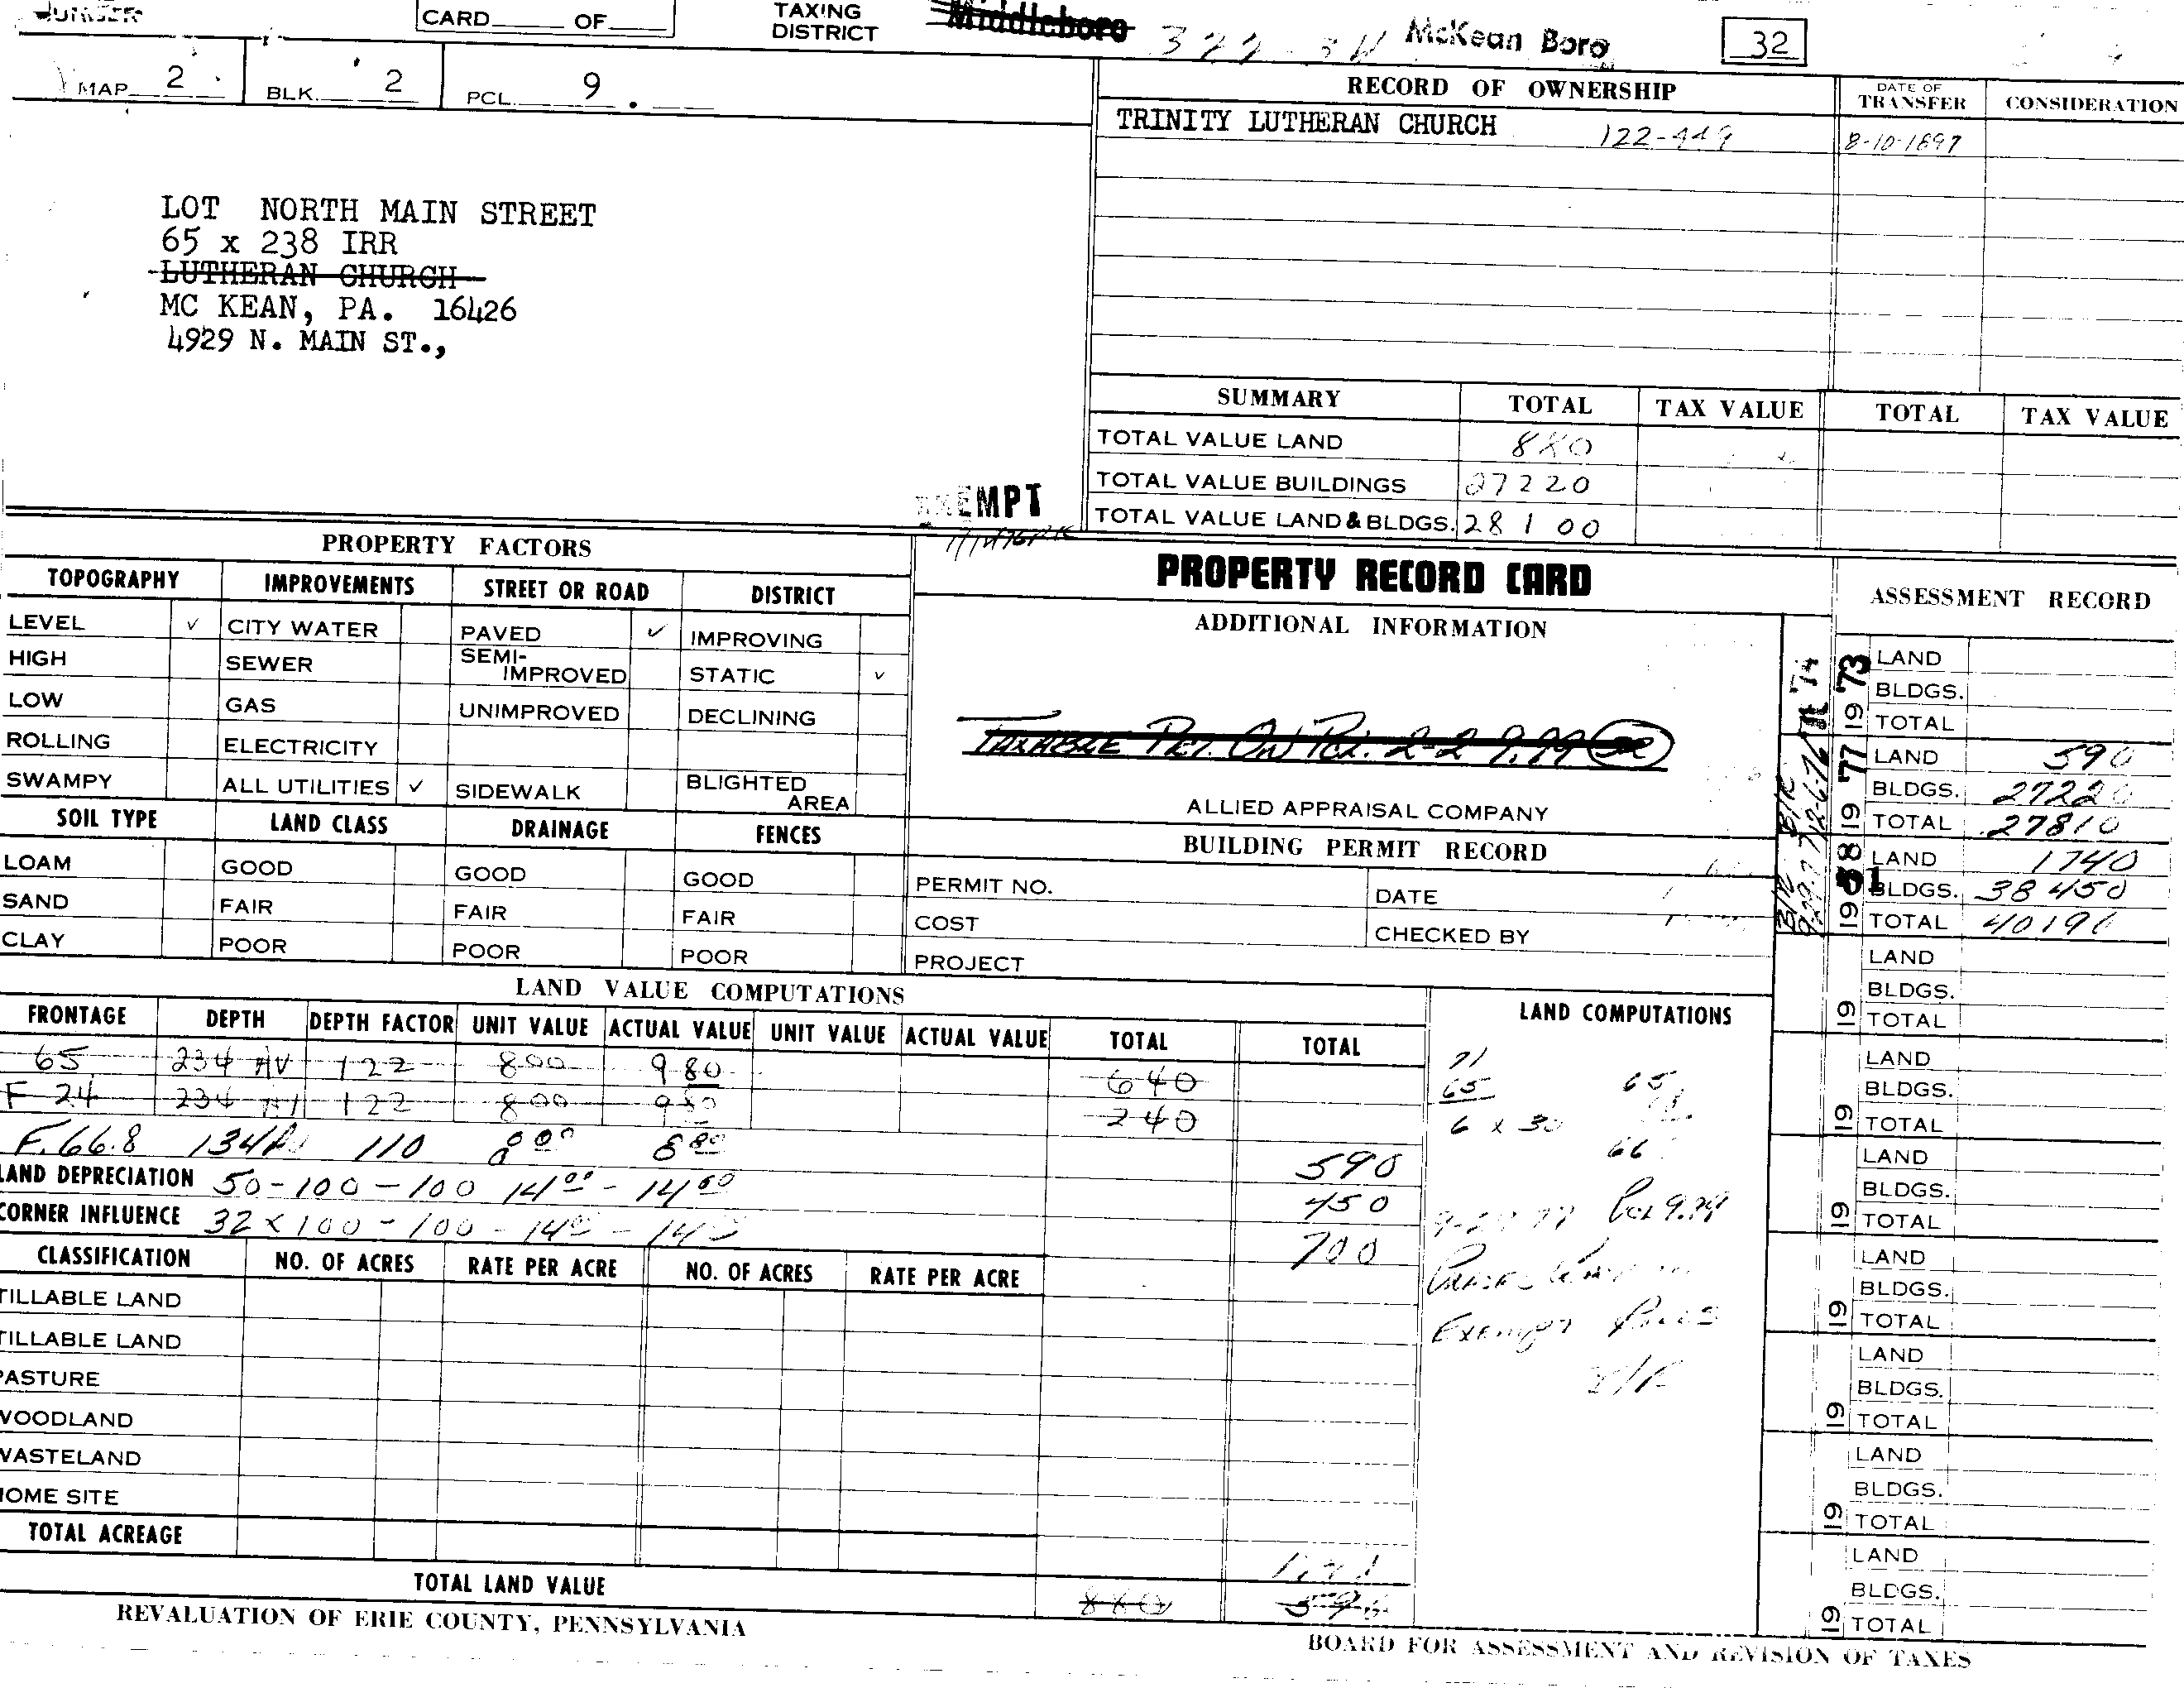 NUMBER
CARD OF
TAXING DISTRICT
Middleboro
McKean Boro
32
MAP 2
BLK. 2
PCL. 9 .
RECORD OF OWNERSHIP
DATE OF TRANSFER
CONSIDERATION
TRINITY LUTHERAN CHURCH 122-449
8-10-1897
LOT NORTH MAIN STREET
65 x 238 IRR
LUTHERAN CHURCH
MC KEAN, PA. 16426
4929 N. MAIN ST.,
SUMMARY TOTAL TAX VALUE TOTAL TAX VALUE
TOTAL VALUE LAND 880
TOTAL VALUE BUILDINGS 27220
TOTAL VALUE LAND & BLDGS. 28100
EXEMPT
PROPERTY FACTORS
TOPOGRAPHY IMPROVEMENTS STREET OR ROAD DISTRICT
LEVEL ✓ CITY WATER PAVED ✓ IMPROVING
HIGH SEWER SEMI-IMPROVED STATIC ✓
LOW GAS UNIMPROVED DECLINING
ROLLING ELECTRICITY
SWAMPY ALL UTILITIES ✓ SIDEWALK BLIGHTED AREA
SOIL TYPE LAND CLASS DRAINAGE FENCES
LOAM GOOD GOOD GOOD
SAND FAIR FAIR FAIR
CLAY POOR POOR POOR
PROPERTY RECORD CARD
ADDITIONAL INFORMATION
TAXABLE PCL. ON PCL. 2-2 9.99
ALLIED APPRAISAL COMPANY
BUILDING PERMIT RECORD
PERMIT NO. DATE
COST CHECKED BY
PROJECT
ASSESSMENT RECORD
1973
LAND
BLDGS.
TOTAL
1977
LAND 590
BLDGS. 27220
TOTAL 27810
19 81
LAND 1740
BLDGS. 38450
TOTAL 40190
LAND
BLDGS.
19 TOTAL
LAND
BLDGS.
19 TOTAL
LAND
BLDGS.
19 TOTAL
LAND
BLDGS.
19 TOTAL
LAND
BLDGS.
19 TOTAL
LAND
BLDGS.
19 TOTAL
LAND
BLDGS.
19 TOTAL
LAND VALUE COMPUTATIONS
FRONTAGE DEPTH DEPTH FACTOR UNIT VALUE ACTUAL VALUE UNIT VALUE ACTUAL VALUE TOTAL TOTAL
65 234 AV 122 800 980 640
F 24 234 AV 122 800 980 240
F. 66.8 134 AV 110 800 880 590
LAND DEPRECIATION 50-100-100 1400-1400 450
CORNER INFLUENCE 32 x 100-100-1400-1400 700
LAND COMPUTATIONS
71
65
6 x 30
65
66
9-27-77 Pcl 9.99
Exempt
CLASSIFICATION NO. OF ACRES RATE PER ACRE NO. OF ACRES RATE PER ACRE
TILLABLE LAND
TILLABLE LAND
PASTURE
WOODLAND
WASTELAND
HOME SITE
TOTAL ACREAGE
TOTAL LAND VALUE 880 590
REVALUATION OF ERIE COUNTY, PENNSYLVANIA
BOARD FOR ASSESSMENT AND REVISION OF TAXES